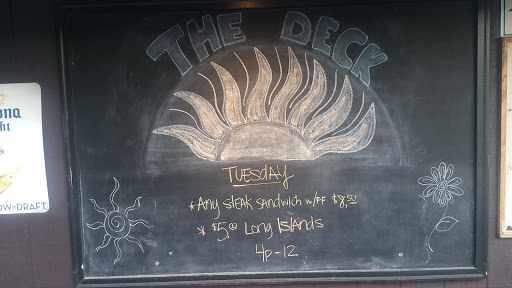 THE DECK
TUESDAY
* Any STEAK SANDWICH W/FF $8.50
* $5.00 Long Islands
4p-12
ona
ht
OW ON DRAFT